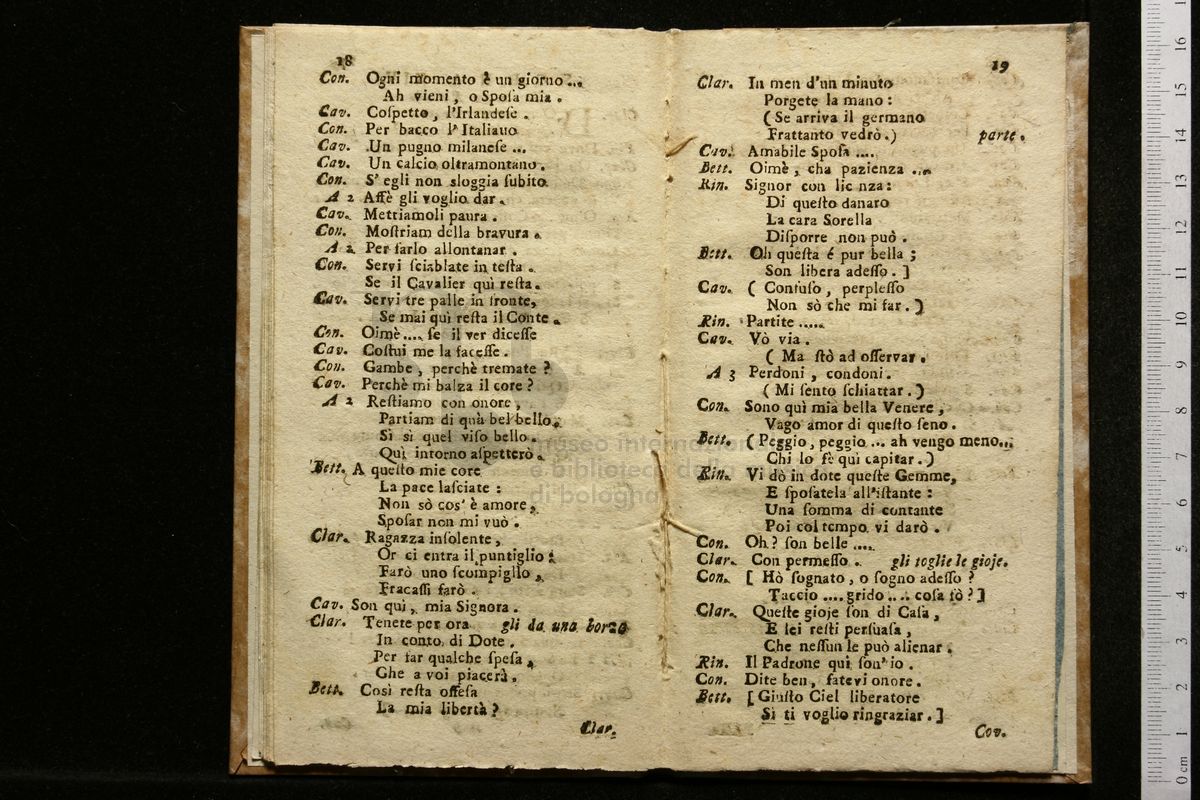 18
Con. Ogni momento è un giorno ...
Ah vieni, o Sposa mia.
Cav. Cospetto, l'Irlandese.
Con. Per bacco l'Italiano
Cav. Un pugno milanese ...
Cav. Un calcio oltramontano.
Con. S' egli non sloggia subito
A 2 Affè gli voglio dar.
Cav. Mettiamoli paura.
Con. Mostriam della bravura.
A 2 Per farlo allontanar.
Con. Servi sciablate in testa.
Se il Cavalier quì resta.
Cav. Servi tre palle in fronte,
Se mai quì resta il Conte.
Con. Oimè .... se il ver dicesse
Cav. Costui me la facesse.
Con. Gambe, perchè tremate?
Cav. Perchè mi balza il core?
A 2 Restiamo con onore,
Partiam di quà bel bello.
Sì sì quel viso bello.
Quì intorno aspetterò.
Bett. A questo mie core
La pace lasciate:
Non sò cos' è amore,
Sposar non mi vuò.
Clar. Ragazza insolente,
Or ci entra il puntiglio:
Farò uno scompiglio,
Fracassi farò.
Cav. Son quì, mia Signora.
Clar. Tenete per ora gli da una borza
In conto di Dote.
Per far qualche spesa,
Che a voi piacerà.
Bett. Così resta offesa
La mia libertà?
Clar.
19
Clar. In men d'un minuto
Porgete la mano:
(Se arriva il germano
Frattanto vedrò.) parte.
Cav. Amabile Sposa ....
Bett. Oimè, cha pazienza ....
Rin. Signor con lic nza:
Di questo danaro
La cara Sorella
Disporre non può.
Bett. Oh questa é pur bella;
Son libera adesso.]
Cav. (Confuso, perplesso
Non sò che mi far.)
Rin. Partite .....
Cav. Vò via.
(Ma stò ad osservar.
A 3 Perdoni, condoni.
(Mi sento schiattar.)
Con. Sono quì mia bella Venere,
Vago amor di questo seno.
Bett. (Peggio, peggio ... ah vengo meno...
Chi lo fè quì capitar.)
Rin. Vi dò in dote queste Gemme,
E sposatela all'istante:
Una somma di contante
Poi col tempo vi darò.
Con. Oh? son belle ....
Clar. Con permesso. gli toglie le gioje.
Con. [Hò sognato, o sogno adesso?
Taccio .... grido .... cosa fò?]
Clar. Queste gioje son di Casa,
E lei resti persuasa,
Che nessun le può alienar.
Rin. Il Padrone quì son' io.
Con. Dite ben, fatevi onore.
Bett. [Giusto Ciel liberatore
Sì ti voglio ringraziar.]
Cov.
museo internazion
e biblioteca della
di bologna
0 cm 1 2 3 4 5 6 7 8 9 10 11 12 13 14 15 16